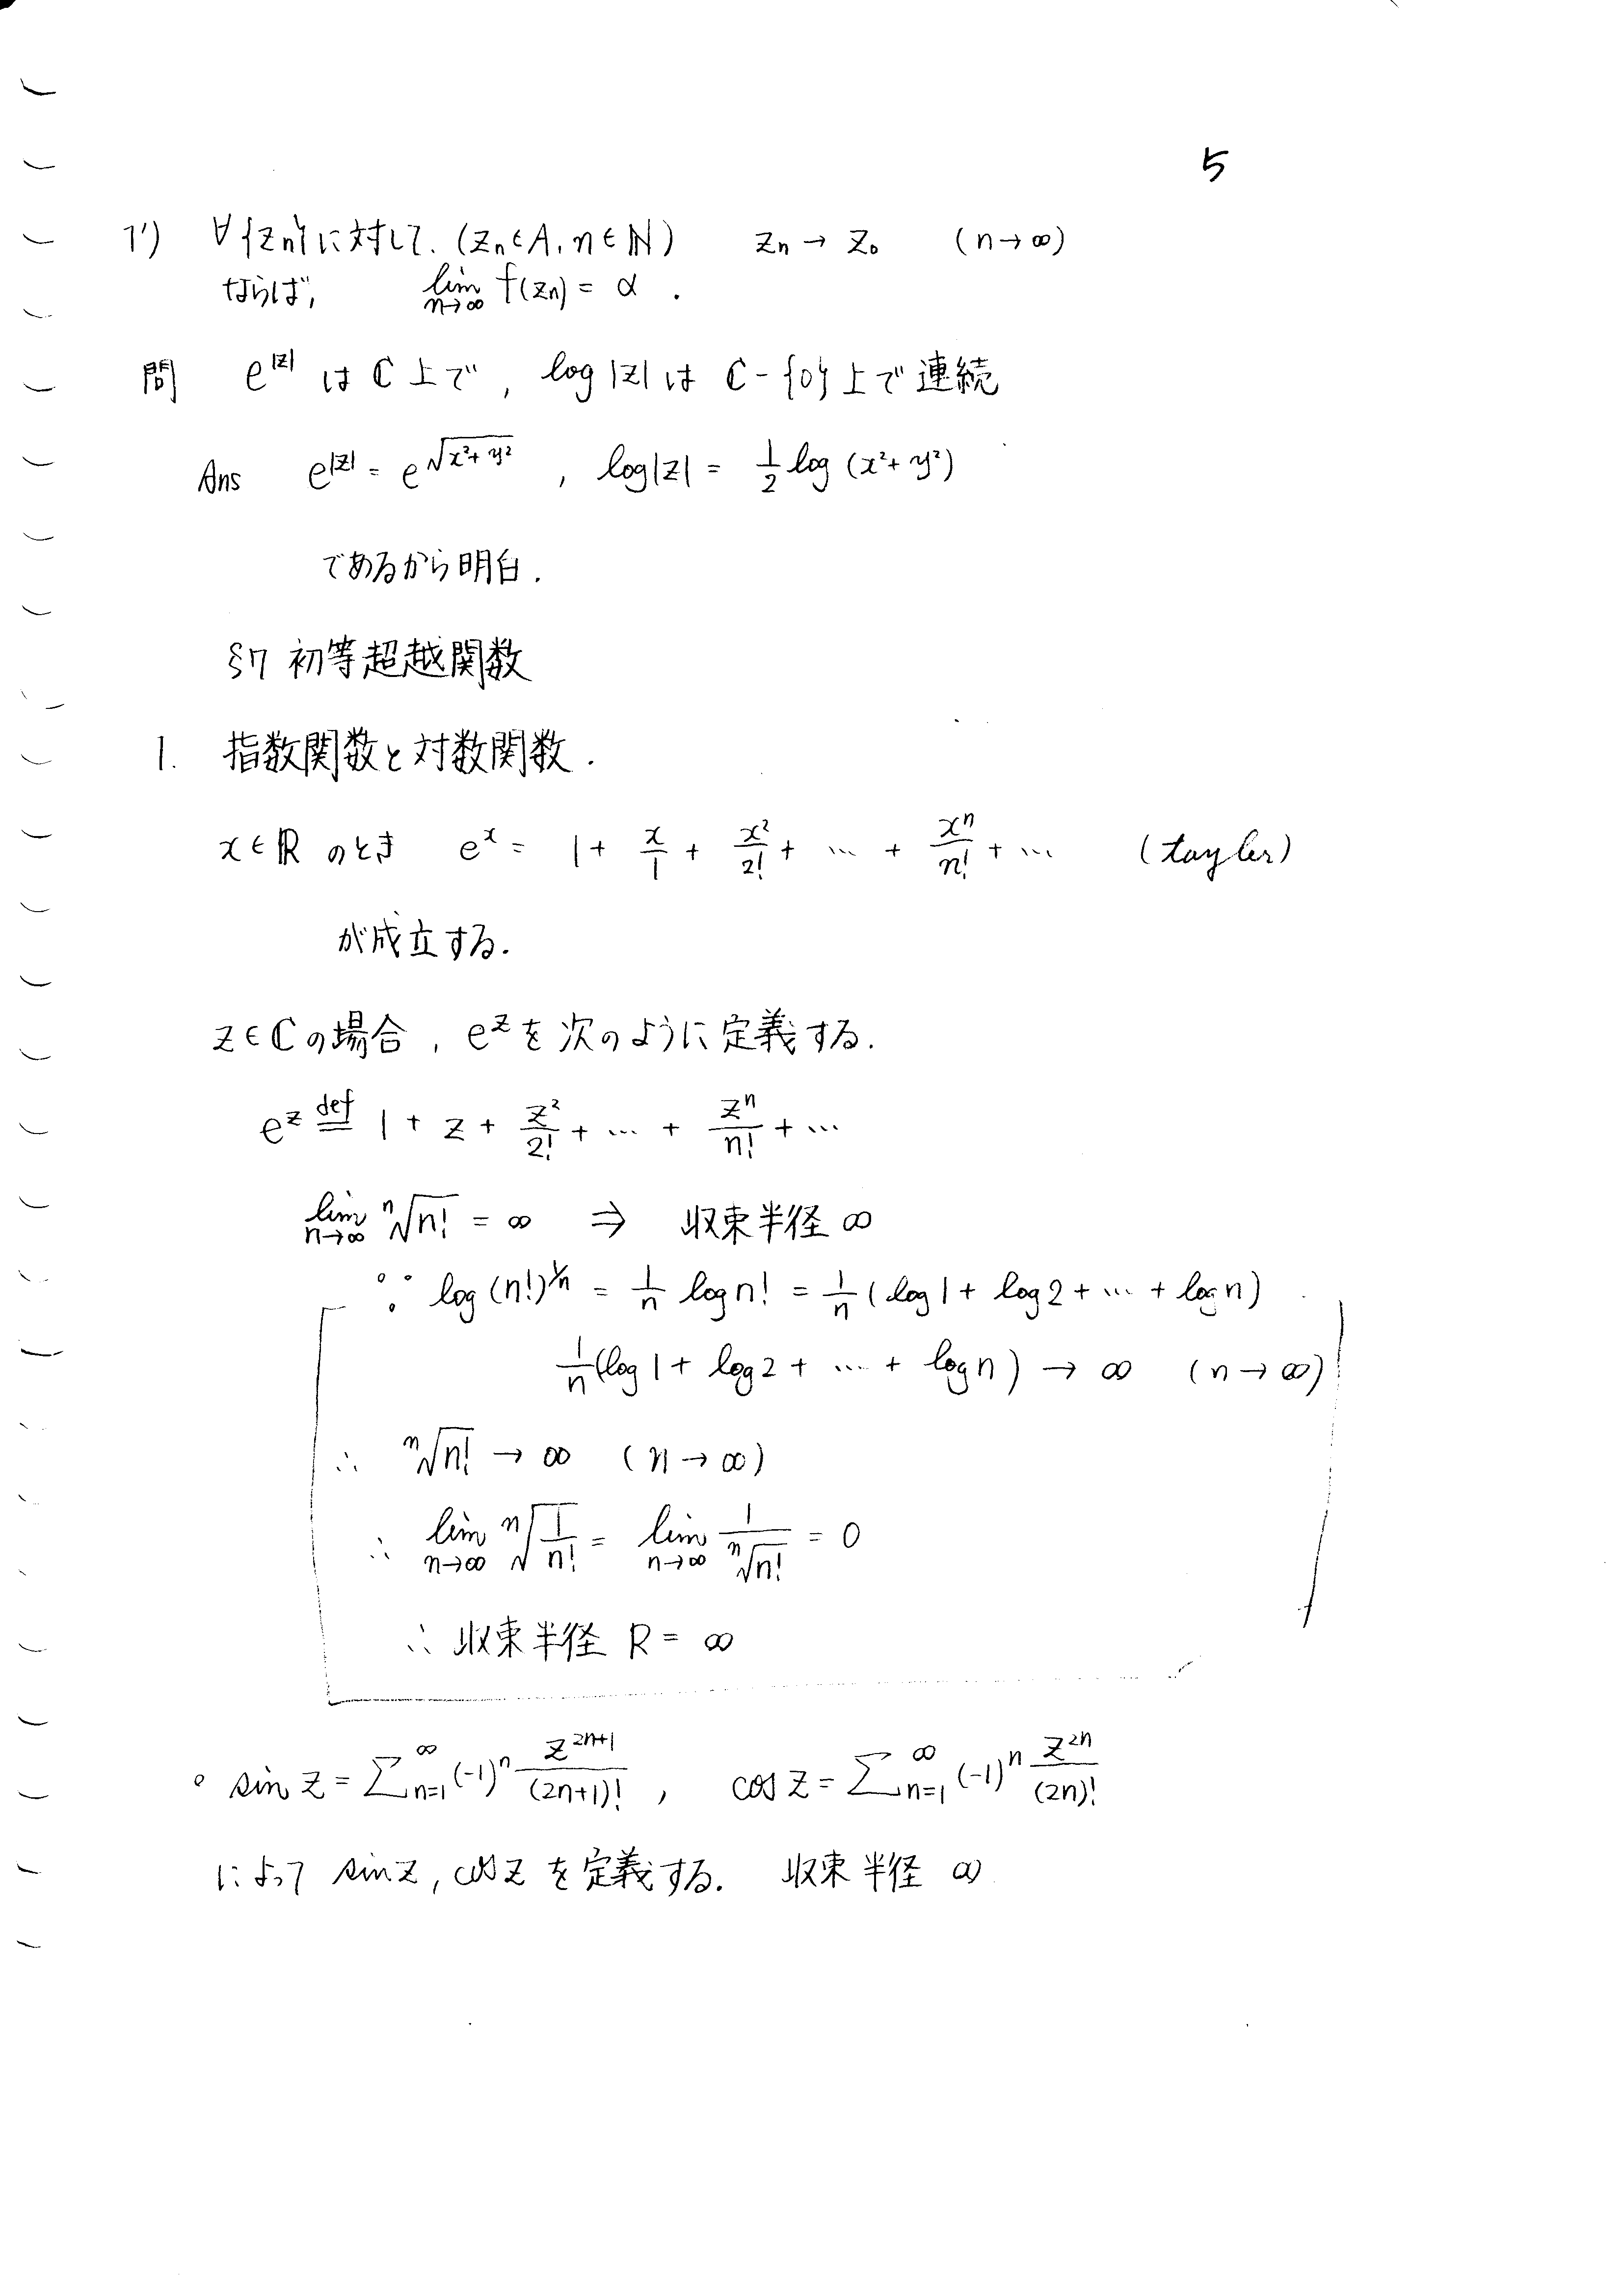 5
1') ∀{zn}に対して. (zn∈A, n∈ℕ) zn → z₀ (n→∞)
ならば, lim_{n→∞} f(zn) = α .
問 e^{|z|} は ℂ 上で, log|z| は ℂ-{0} 上で連続
Ans e^{|z|} = e^{√(x²+y²)} , log|z| = 1/2 log (x²+y²)
であるから明白.
§7 初等超越関数
1. 指数関数と対数関数.
x∈ℝ のとき e^x = 1 + x/1 + x²/2! + … + x^n/n! + … (tayler)
が成立する.
z∈ℂの場合, e^z を次のように定義する.
e^z def= 1 + z + z²/2! + … + z^n/n! + …
lim_{n→∞} ⁿ√n! = ∞ ⇒ 収束半径 ∞
∵ log(n!)^{1/n} = 1/n log n! = 1/n (log1 + log2 + … + logn)
1/n (log1 + log2 + … + logn) → ∞ (n→∞)
∴ ⁿ√n! → ∞ (n→∞)
∴ lim_{n→∞} ⁿ√(1/n!) = lim_{n→∞} 1/ⁿ√n! = 0
∴ 収束半径 R = ∞
° sin z = ∑_{n=1}^{∞} (-1)^n z^{2n+1}/(2n+1)! , cos z = ∑_{n=1}^{∞} (-1)^n z^{2n}/(2n)!
によって sin z, cos z を定義する. 収束半径 ∞